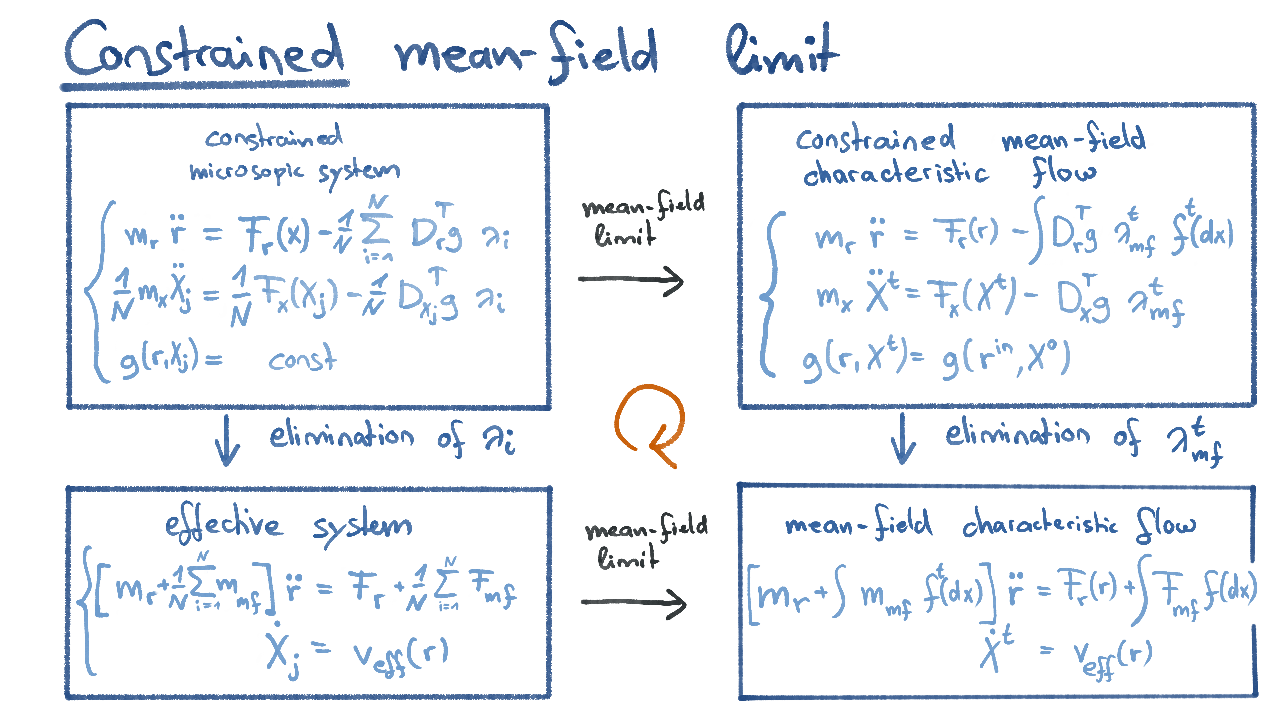 Constrained mean-field limit
constrained
microsopic system
m_r r̈ = F_r(x) - 1/N ∑_{i=1}^N D_r^T g λ_i
1/N m_x Ẍ_j = 1/N F_x(X_j) - 1/N D_{X_j}^T g λ_i
g(r,X_j) = const
mean-field
limit
constrained mean-field
characteristic flow
m_r r̈ = F_r(r) - ∫ D_r^T g λ_{mf}^t f^t(dx)
m_x Ẍ^t = F_x(X^t) - D_x^T g λ_{mf}^t
g(r, X^t) = g(r^{in}, X^0)
elimination of λ_i
elimination of λ_{mf}^t
effective system
[m_r + 1/N ∑_{i=1}^N m_{mf}] r̈ = F_r + 1/N ∑_{i=1}^N F_{mf}
Ẋ_j = v_{eff}(r)
mean-field
limit
mean-field characteristic flow
[m_r + ∫ m_{mf} f^t(dx)] r̈ = F_r(r) + ∫ F_{mf} f(dx)
Ẋ^t = v_{eff}(r)